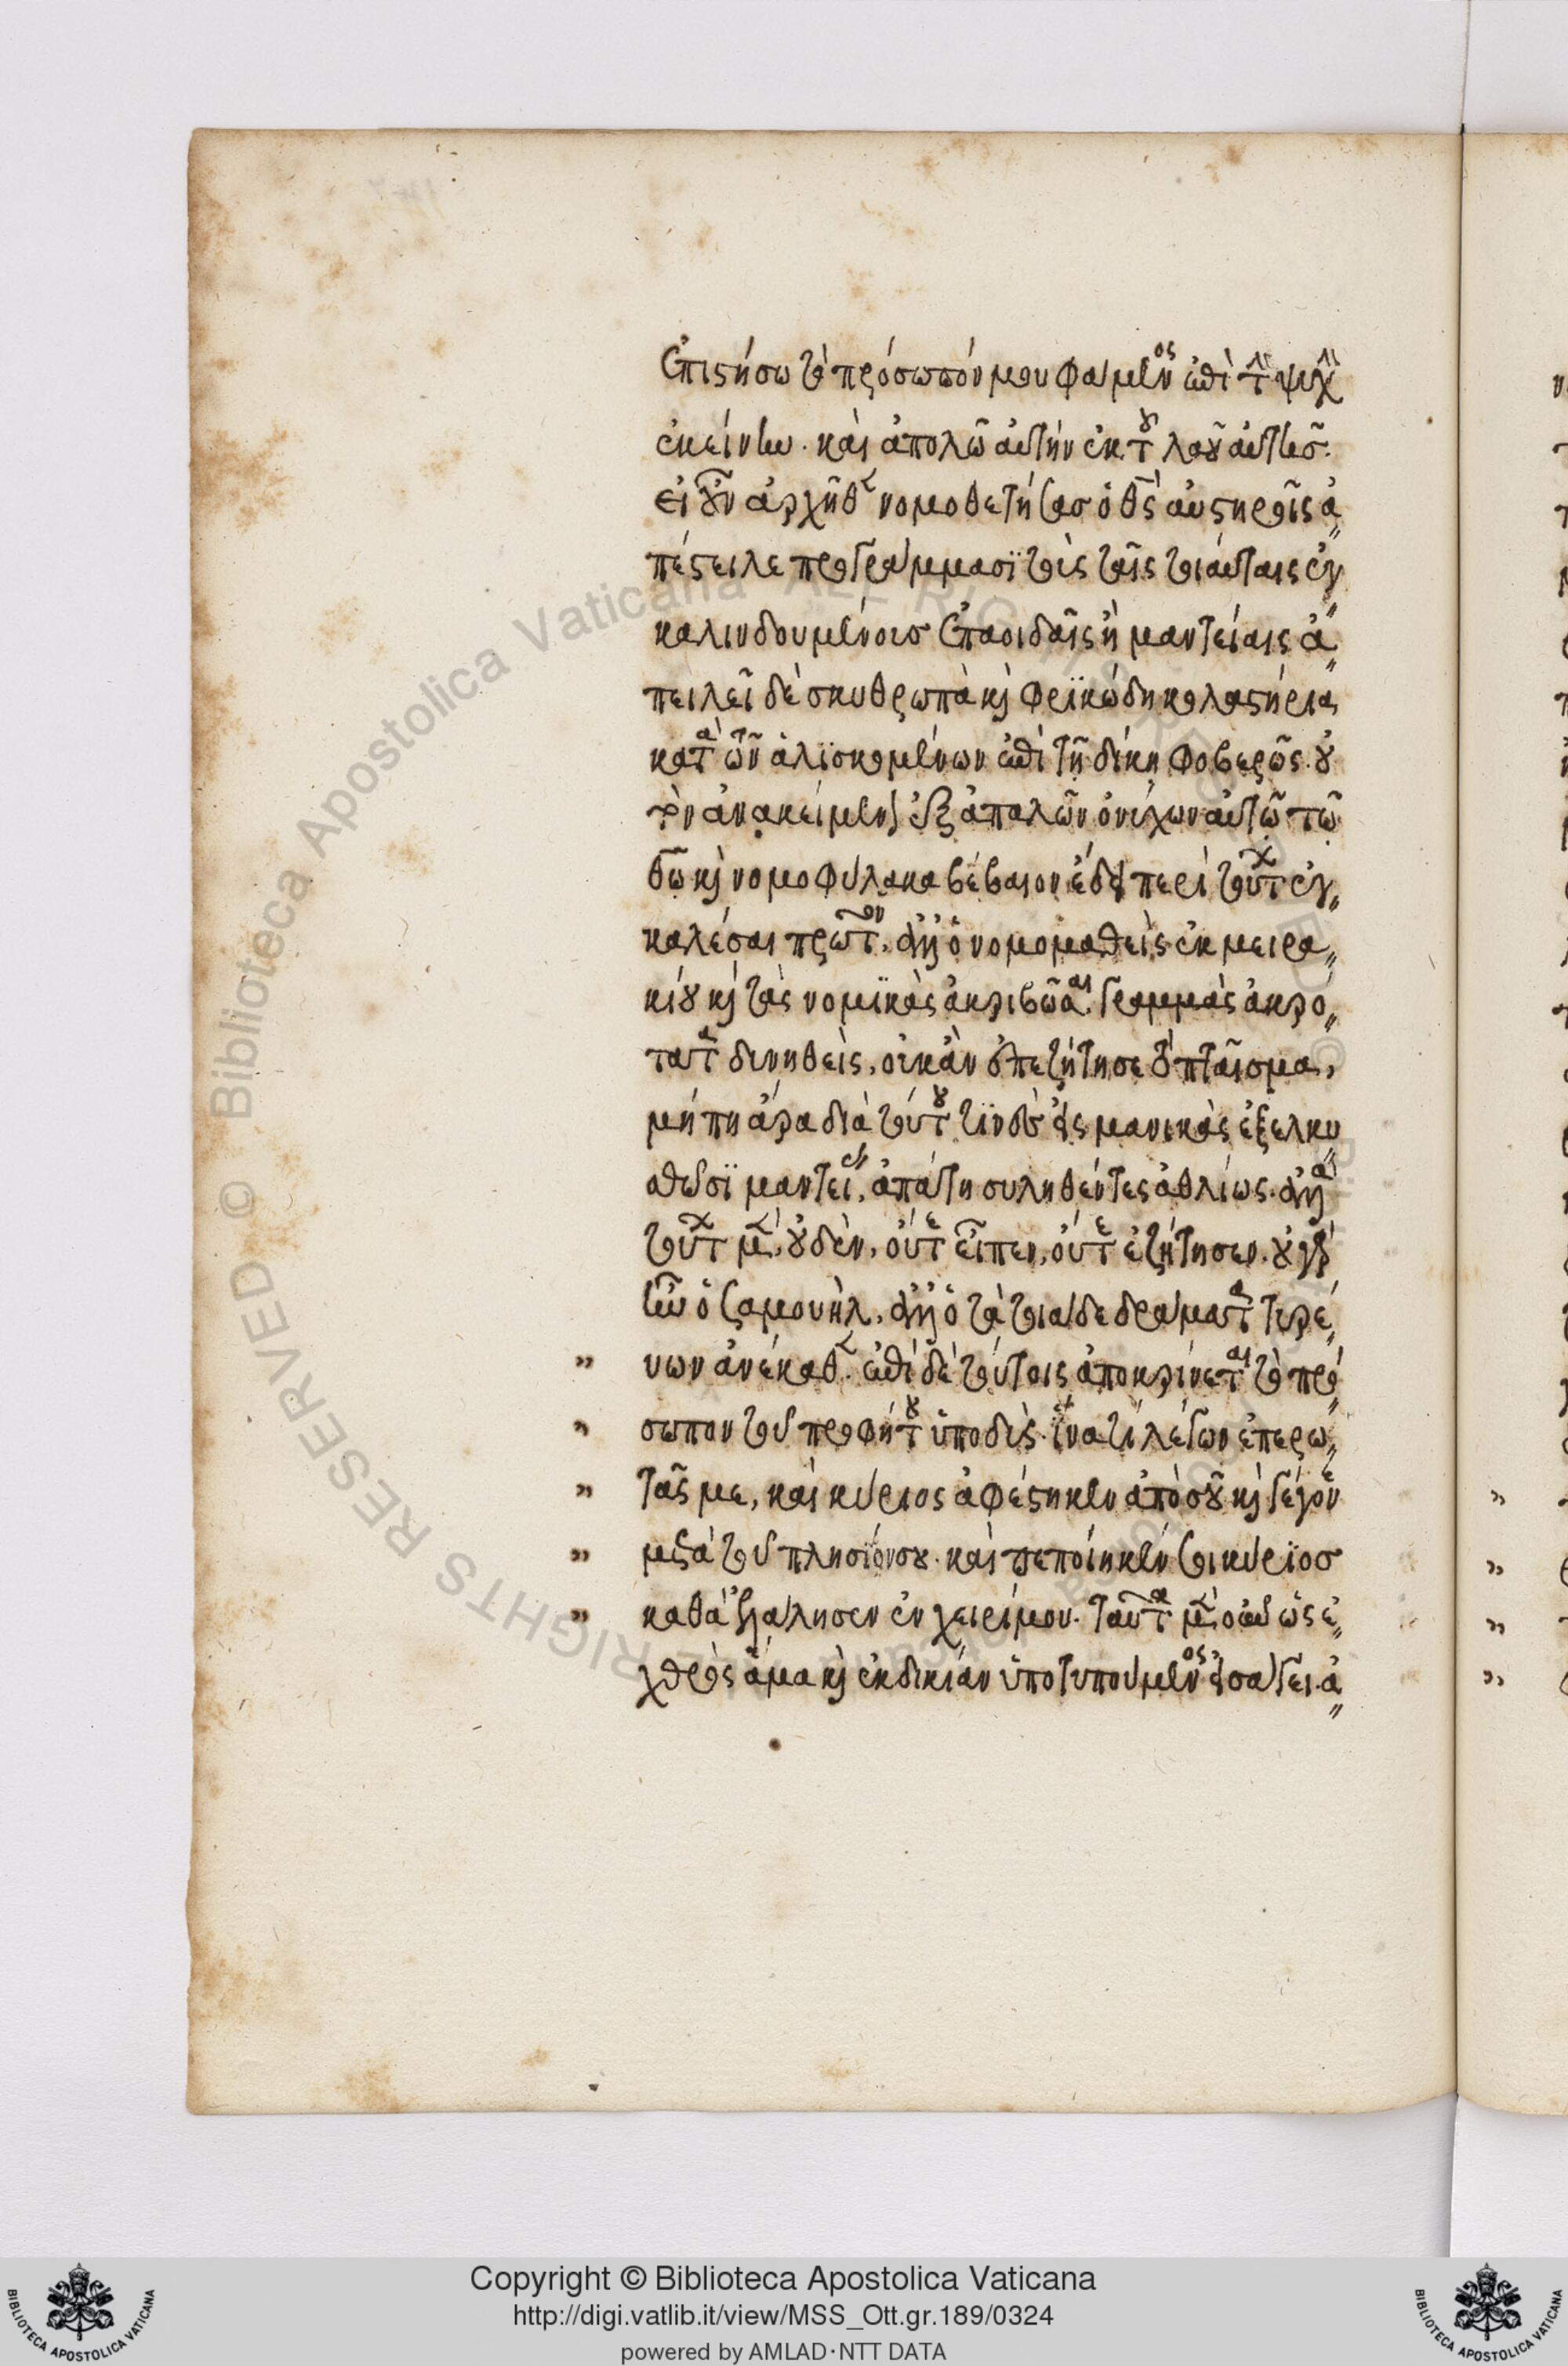 Ἐπιστήσω τὸ πρόσωπόν μου φάμενος ἐπὶ τὴν ψυχὴν
ἐκείνην. καὶ ἀπολῶ αὐτὴν ἐκ τοῦ λαοῦ αὐτῆσ.
εἰ οὖν ἀρχῆθεν νομοθετήσασ ὁ θς αὐστηροῖς ἀ
πέστειλε προγράμμασϊ τοῖς ταῖς τοιαύταις ἐγ
καλινδουμένοισ ἐπαοιδαῖς ἢ μαντείαις ἀ
πειλεῖ δὲ σκυθρωπὰ καὶ φρϊκώδη κολαστήρια
κατὰ τῶν ἁλϊσκομένων ἐπὶ τῇ δίκῃ φοβερῶς. οὐ
τὸν ἀνακείμενον ἐξ ἁπαλῶν ὀνύχων αὐτῷ τῷ
θῶ καὶ νομοφύλακα βέβαιον ἔδει περὶ τούτων ἐγ
καλέσαι πρῶτον. ἀλλ' ὁ νομομαθεὶς ἐκ μειρα
κίου καὶ τὰς νομϊκὰς ἀκριβῶσαι γραμμὰς ἀκρό
τατα δινηθεὶς, οὐκ ἂν ἐπεζήτησε τὸ πταῖσμα,
μή πη ἄρα διὰ τούτου τϊνὲς εἰς μανικὰς ἐξελκυ
σθῶσϊ μαντείας, ἀπάτῃ συληθέντες ἀθλίως. ἀλλὰ
τούτων μὲν οὐδὲν, οὔτε εἶπεν, οὔτε ἐζήτησεν. οὐ γὰρ
ἦν ὁ σαμουὴλ, ἀλλ' ὁ τὰ τοιάδε δράματα τυρεύ
νων ἀνέκαθεν. ἐπὶ δὲ τούτοις ἀποκρίνεται τὸ πρό
σωπον τοῦ προφήτου ὑποδὺς. ἵνα τί λέγων ἐπερω
τᾶς με, καὶ κύριος ἀφέστηκεν ἀπὸ σοῦ καὶ γέγονε
μετὰ τοῦ πλησϊόν σου. καὶ πεποίηκέν σοι κύρϊοσ
καθὰ ἐλάλησεν ἐν χειρί μου. ταῦτα μὲν οὖν ὡς ἐ
χθρὸς ἅμα καὶ ἐκδικίαν ὑποτυπούμενος εἰσάγει. ἀ
Copyright © Biblioteca Apostolica Vaticana
http://digi.vatlib.it/view/MSS_Ott.gr.189/0324
powered by AMLAD·NTT DATA
BIBLIOTECA APOSTOLICA VATICANA
BIBLIOTECA APOSTOLICA VATICANA